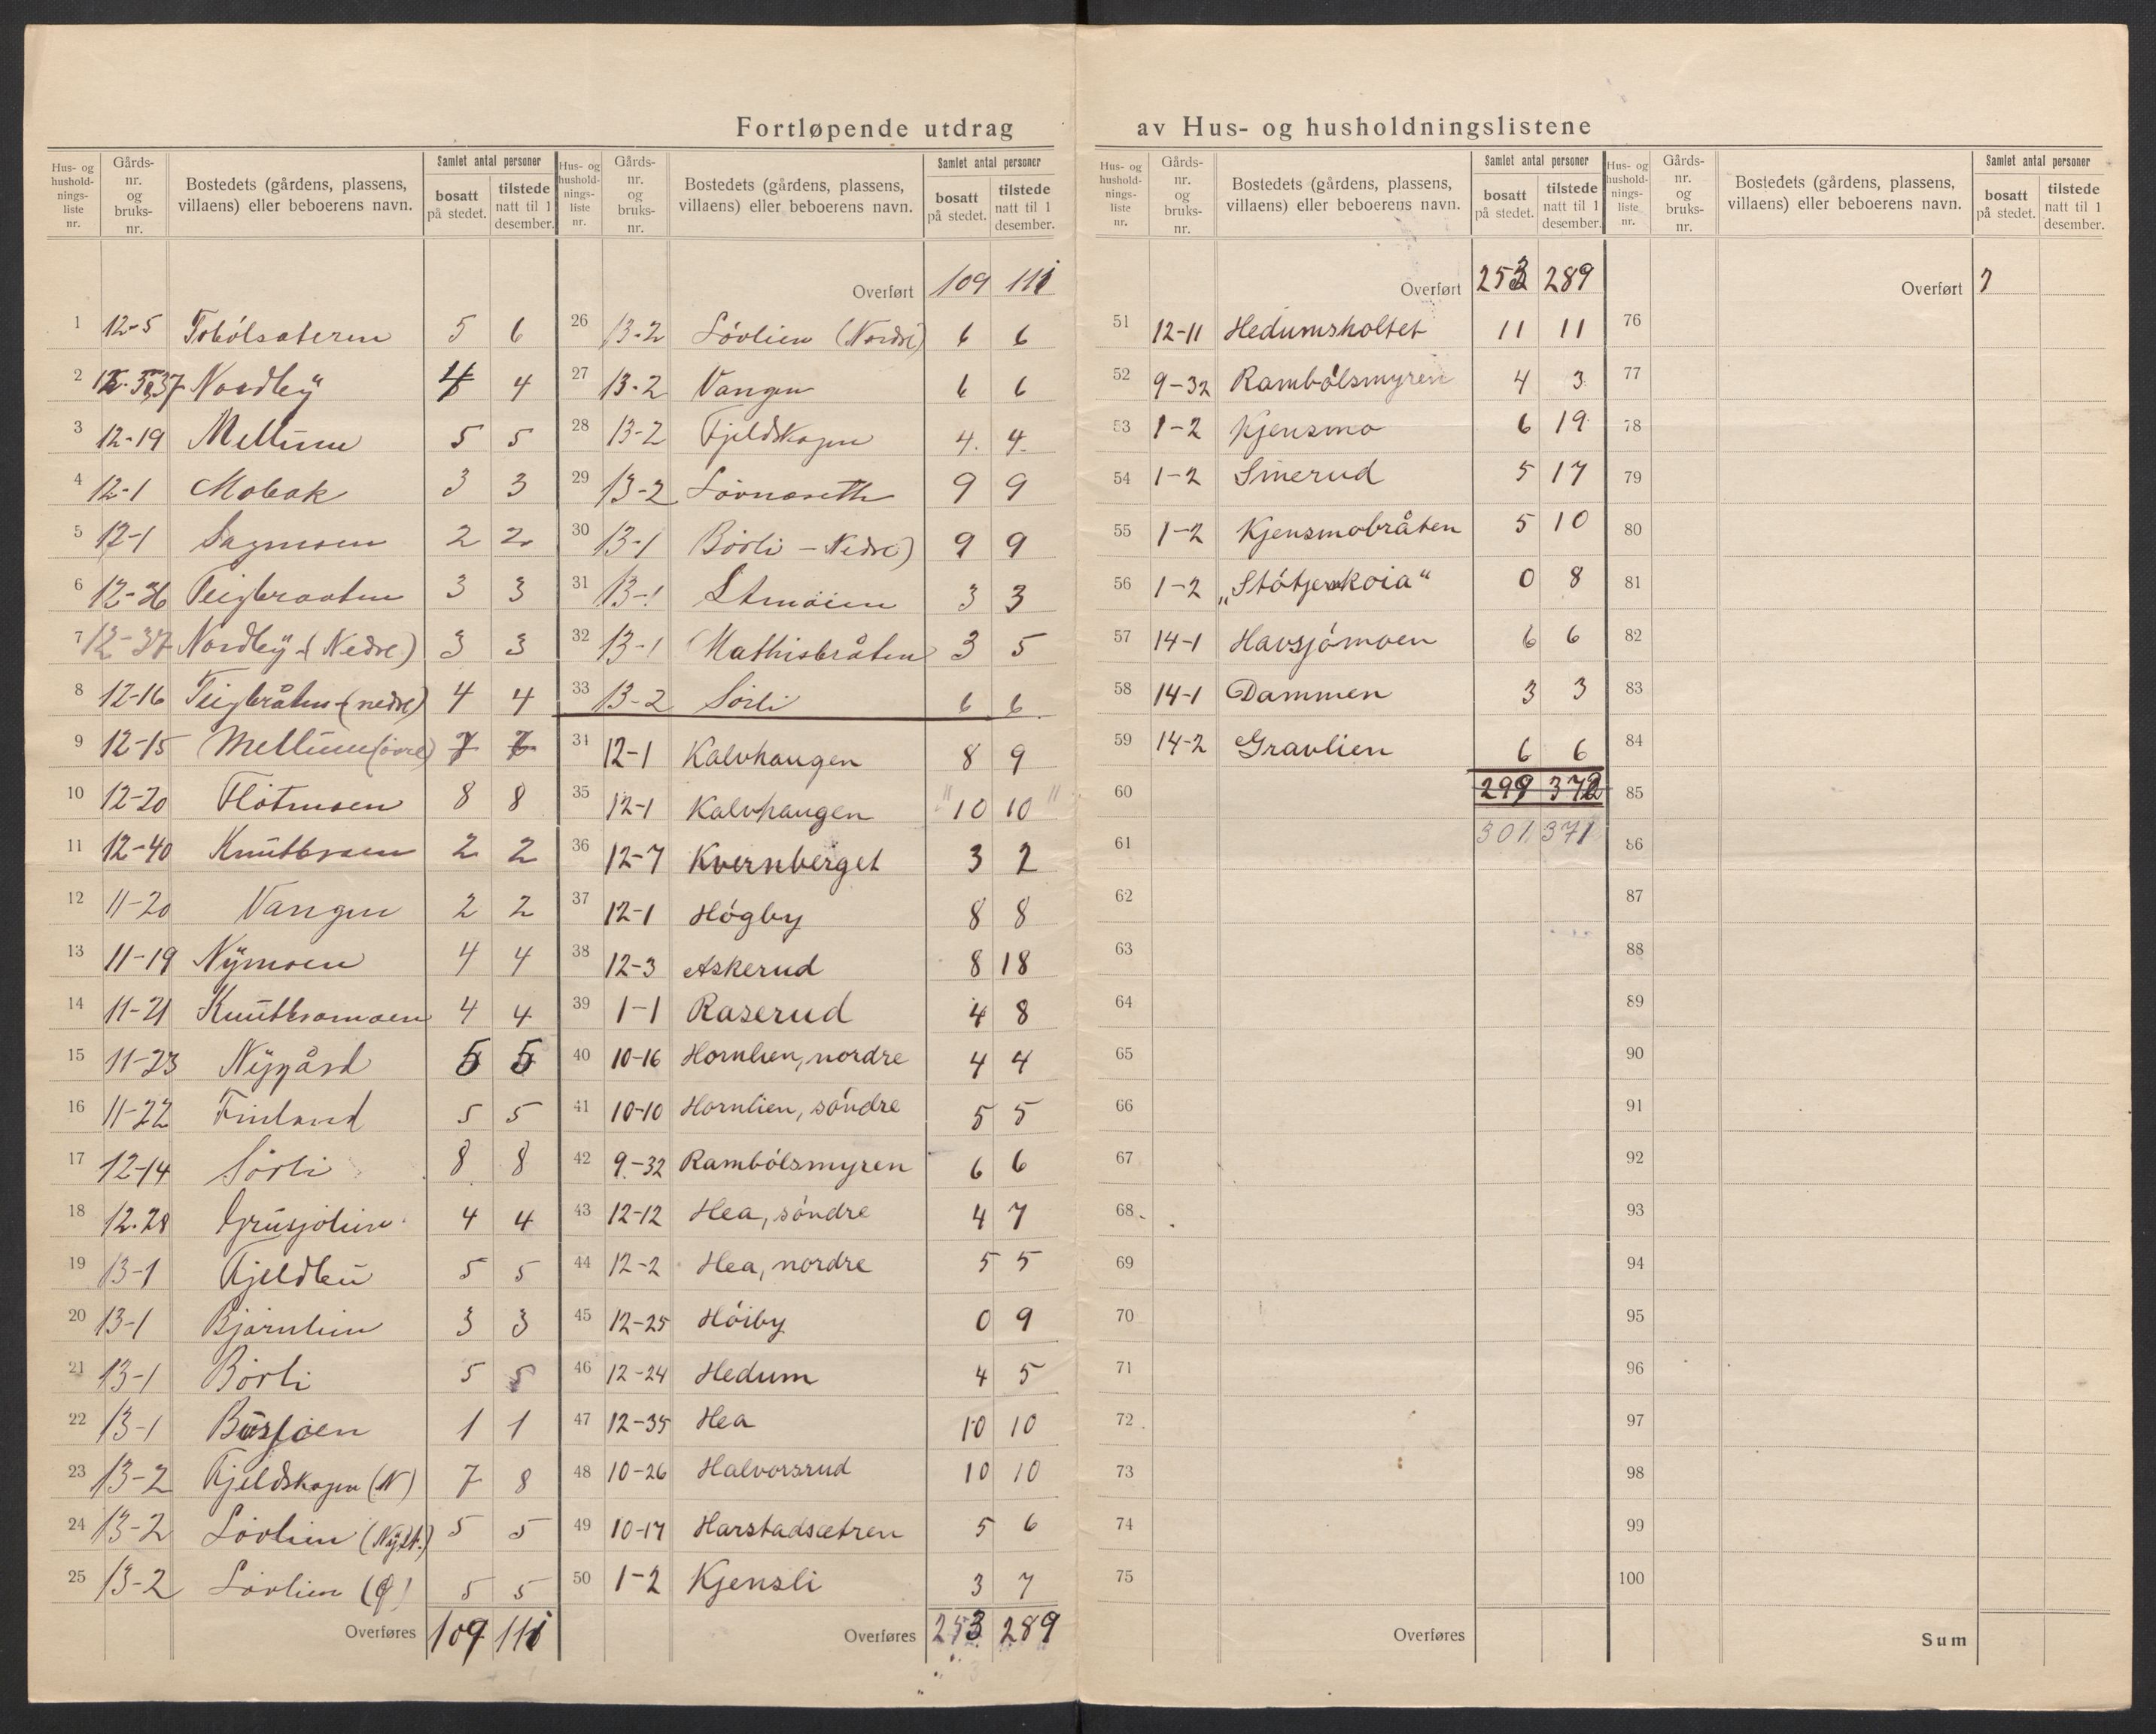 Fortløpende utdrag av Hus- og husholdningslistene
Hus- og hushold-nings-liste nr. | Gårds-nr. og bruks-nr. | Bostedets (gårdens, plassens, villaens) eller beboerens navn. | Samlet antal personer | bosatt på stedet. | tilstede natt til 1 desember.
1 12-5 Tobölsæteren 5 6
2 Nordby 4 4
3 12-19 Mellum 5 5
4 12-1 Mobak 3 3
5 12-1 Sagmoen 2 2
6 12-26 Teigbraaten 3 3
7 12-37 Nordby (Nedre) 3 3
8 12-16 Teigbråten (nedre) 4 4
9 12-15 Mellum (övre) 7 7
10 12-20 Flötmoen 8 8
11 12-40 Knutbroen 2 2
12 11-20 Vangen 2 2
13 11-19 Nymoen 4 4
14 11-21 Knutbromoen 4 4
15 11-23 Nygård 5 5
16 11-22 Finland 5 5
17 12-14 Sörli 8 8
18 12-28 Grusjölien 4 4
19 13-1 Fjeldbu 5 5
20 13-1 Björnlien 3 3
21 13-1 Börli 5 5
22 13-1 Busjöen 1 1
23 13-2 Fjeldskogen (N) 7 8
24 13-2 Lövlien (Nyst.) 5 5
25 13-2 Lövlien (Ø) 5 5
Overføres 109 111
Hus- og hushold-nings-liste nr. | Gårds-nr. og bruks-nr. | Bostedets (gårdens, plassens, villaens) eller beboerens navn. | Samlet antal personer | bosatt på stedet. | tilstede natt til 1 desember.
Overført 109 111
26 13-2 Lövlien (Nordre) 6 6
27 13-2 Vangen 6 6
28 13-2 Fjeldskogen 4 4
29 13-2 Lövnæseth 9 9
30 13-1 Börli - Nedre) 9 9
31 13-1 3 3
32 13-1 Mathisbråten 3 5
33 13-2 Sörli 6 6
34 12-1 Kalvhaugen 8 9
35 12-1 Kalvhaugen " 10 10 "
36 12-7 Kvernberget 3 2
37 12-1 Högby 8 8
38 12-3 Askerud 8 18
39 1-1 Raserud 4 8
40 10-16 Hornlien, nordre 4 4
41 10-10 Hornlien, söndre 5 5
42 9-32 Rambölsmyren 6 6
43 12-12 Hea, söndre 4 7
44 12-2 Hea, nordre 5 5
45 12-25 Höiby 0 9
46 12-24 Hedum 4 5
47 12-35 Hea 10 10
48 10-26 Halvorsrud 10 10
49 10-17 Harstadsætren 5 6
50 1-2 Kjensli 3 7
Overføres 253 289
Hus- og hushold-nings-liste nr. | Gårds-nr. og bruks-nr. | Bostedets (gårdens, plassens, villaens) eller beboerens navn. | Samlet antal personer | bosatt på stedet. | tilstede natt til 1 desember.
Overført 253 289
51 12-11 Hedumsholtet 11 11
52 9-32 Rambölsmyren 4 3
53 1-2 Kjensmo 6 19
54 1-2 Smerud 5 17
55 1-2 Kjensmobråten 5 10
56 1-2 „Stötjernkoia“ 0 8
57 14-1 Havsjömoen 6 6
58 14-1 Dammen 3 3
59 14-2 Gravlien 6 6
60 299 372
61 301 371
62
63
64
65
66
67
68
69
70
71
72
73
74
75
Overføres
Hus- og hushold-nings-liste nr. | Gårds-nr. og bruks-nr. | Bostedets (gårdens, plassens, villaens) eller beboerens navn. | Samlet antal personer | bosatt på stedet. | tilstede natt til 1 desember.
Overført 7
76
77
78
79
80
81
82
83
84
85
86
87
88
89
90
91
92
93
94
95
96
97
98
99
100
Sum